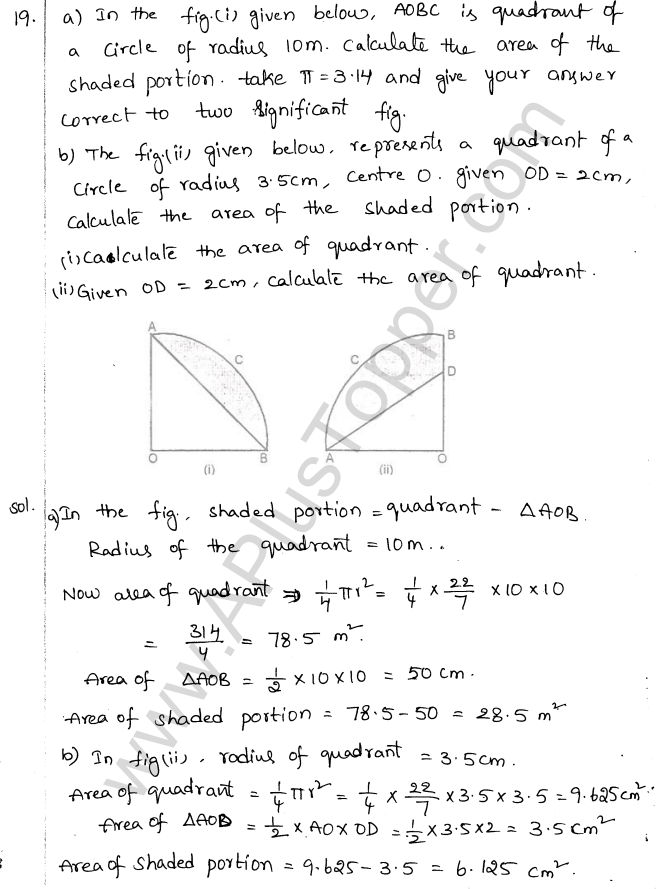 19. a) In the fig.(i) given below, AOBC is quadrant of
a circle of radius 10m. Calculate the area of the
shaded portion. take π = 3.14 and give your answer
correct to two significant fig.
b) The fig.(ii) given below, represents a quadrant of a
circle of radius 3.5cm, centre O. given OD = 2cm,
Calculate the area of the shaded portion.
(i) Caclculate the area of quadrant.
(ii) Given OD = 2cm, Calculate the area of quadrant.
A
C
O
B
(i)
B
C
D
A
O
(ii)
Sol. a) In the fig., shaded portion = quadrant - △AOB.
Radius of the quadrant = 10m..
Now area of quadrant ⇒ 1/4 πr² = 1/4 × 22/7 × 10 × 10
= 314/4 = 78.5 m².
Area of △AOB = 1/2 × 10 × 10 = 50 cm.
Area of shaded portion = 78.5 - 50 = 28.5 m²
b) In fig(ii), radius of quadrant = 3.5cm.
Area of quadrant = 1/4 πr² = 1/4 × 22/7 × 3.5 × 3.5 = 9.625cm².
Area of △AOD = 1/2 × AO × OD = 1/2 × 3.5 × 2 = 3.5 cm²
Area of Shaded portion = 9.625 - 3.5 = 6.125 cm².
www.APlusTopper.com